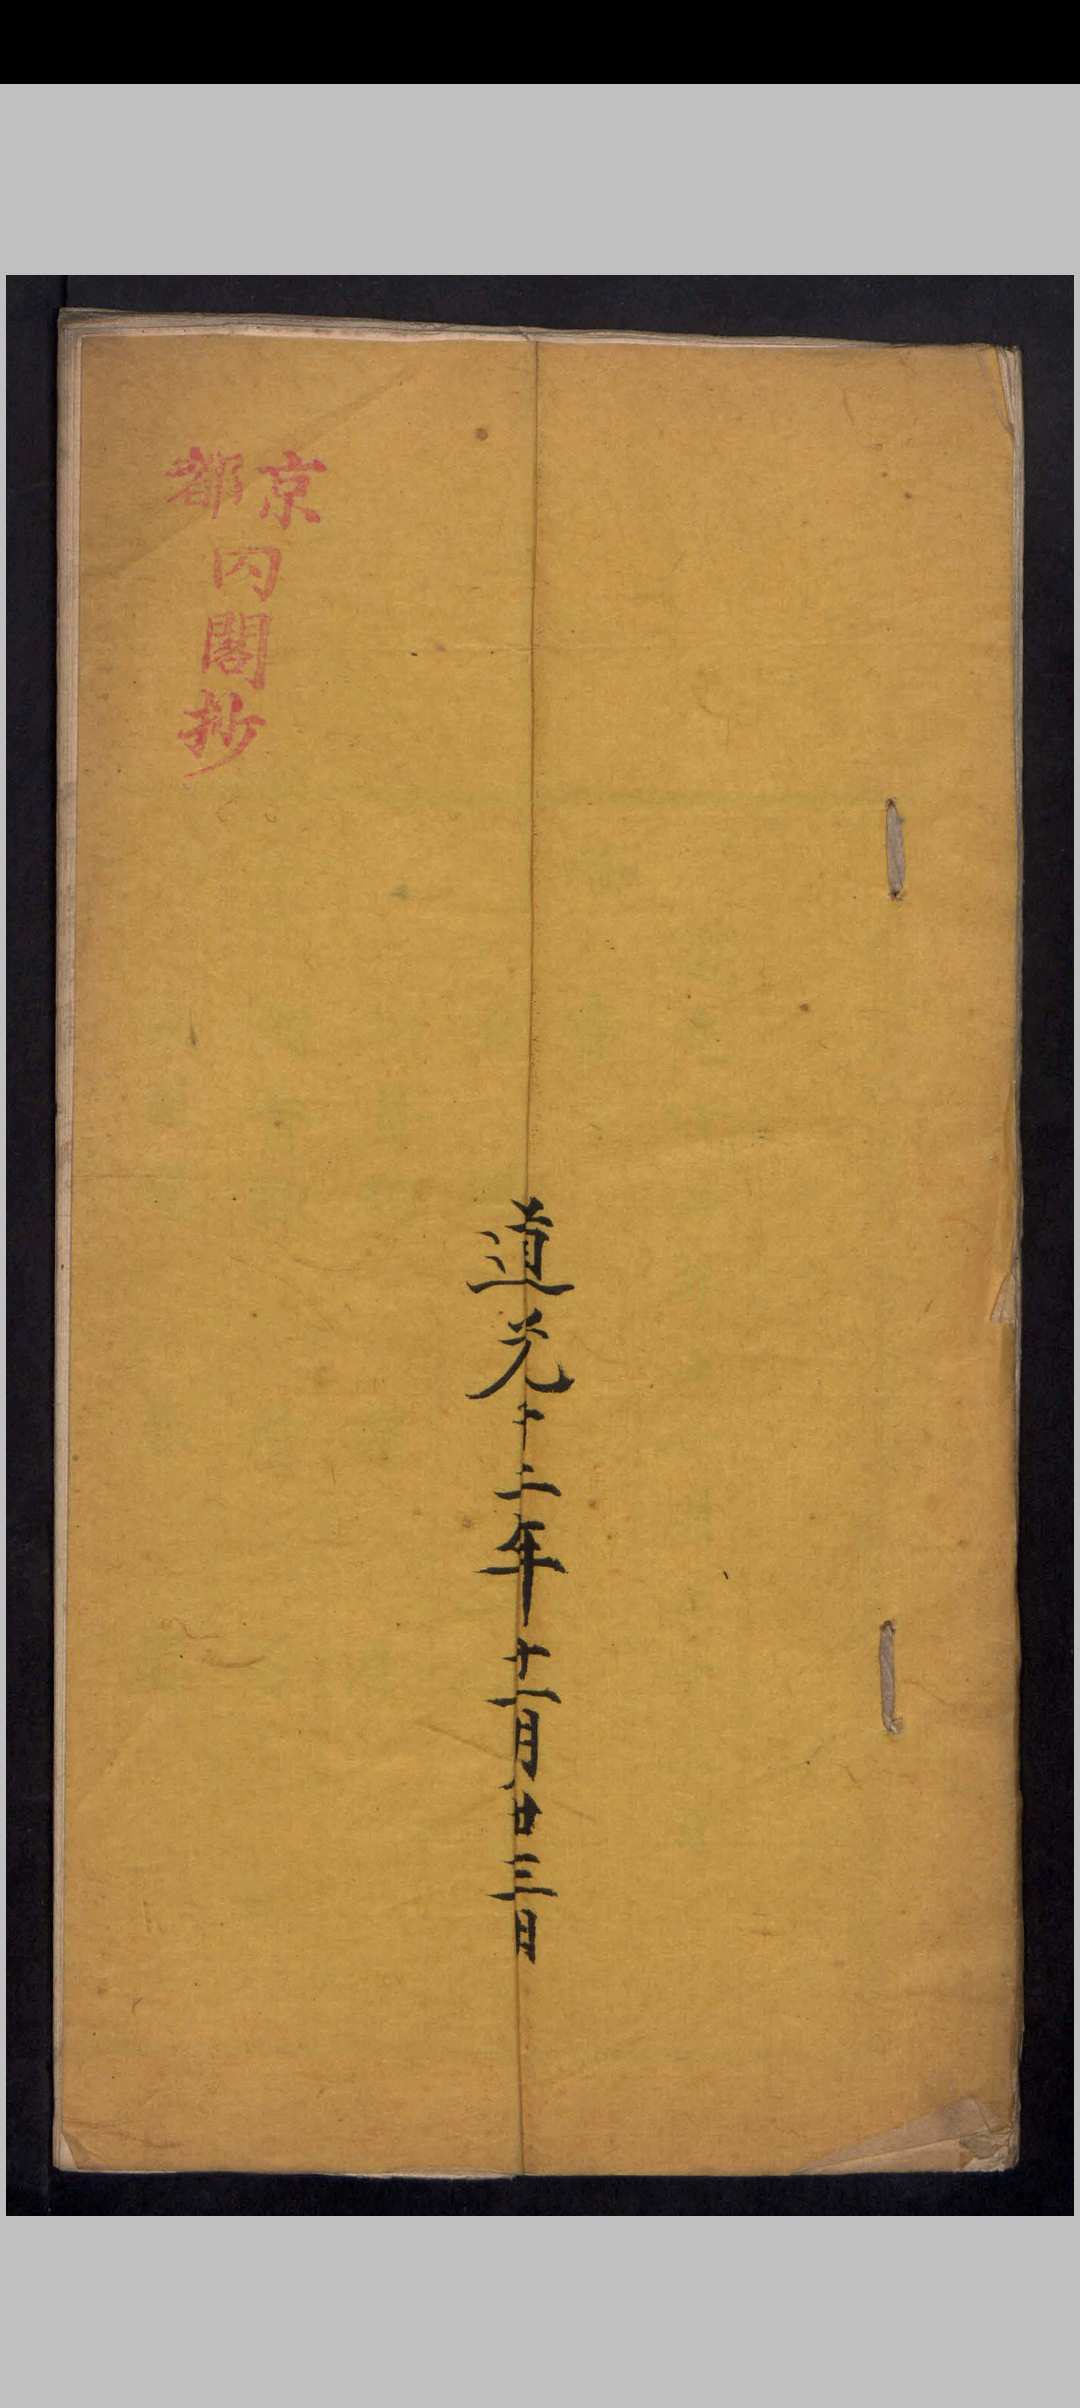 道光十二年十一月廿三日
京都
内閣抄